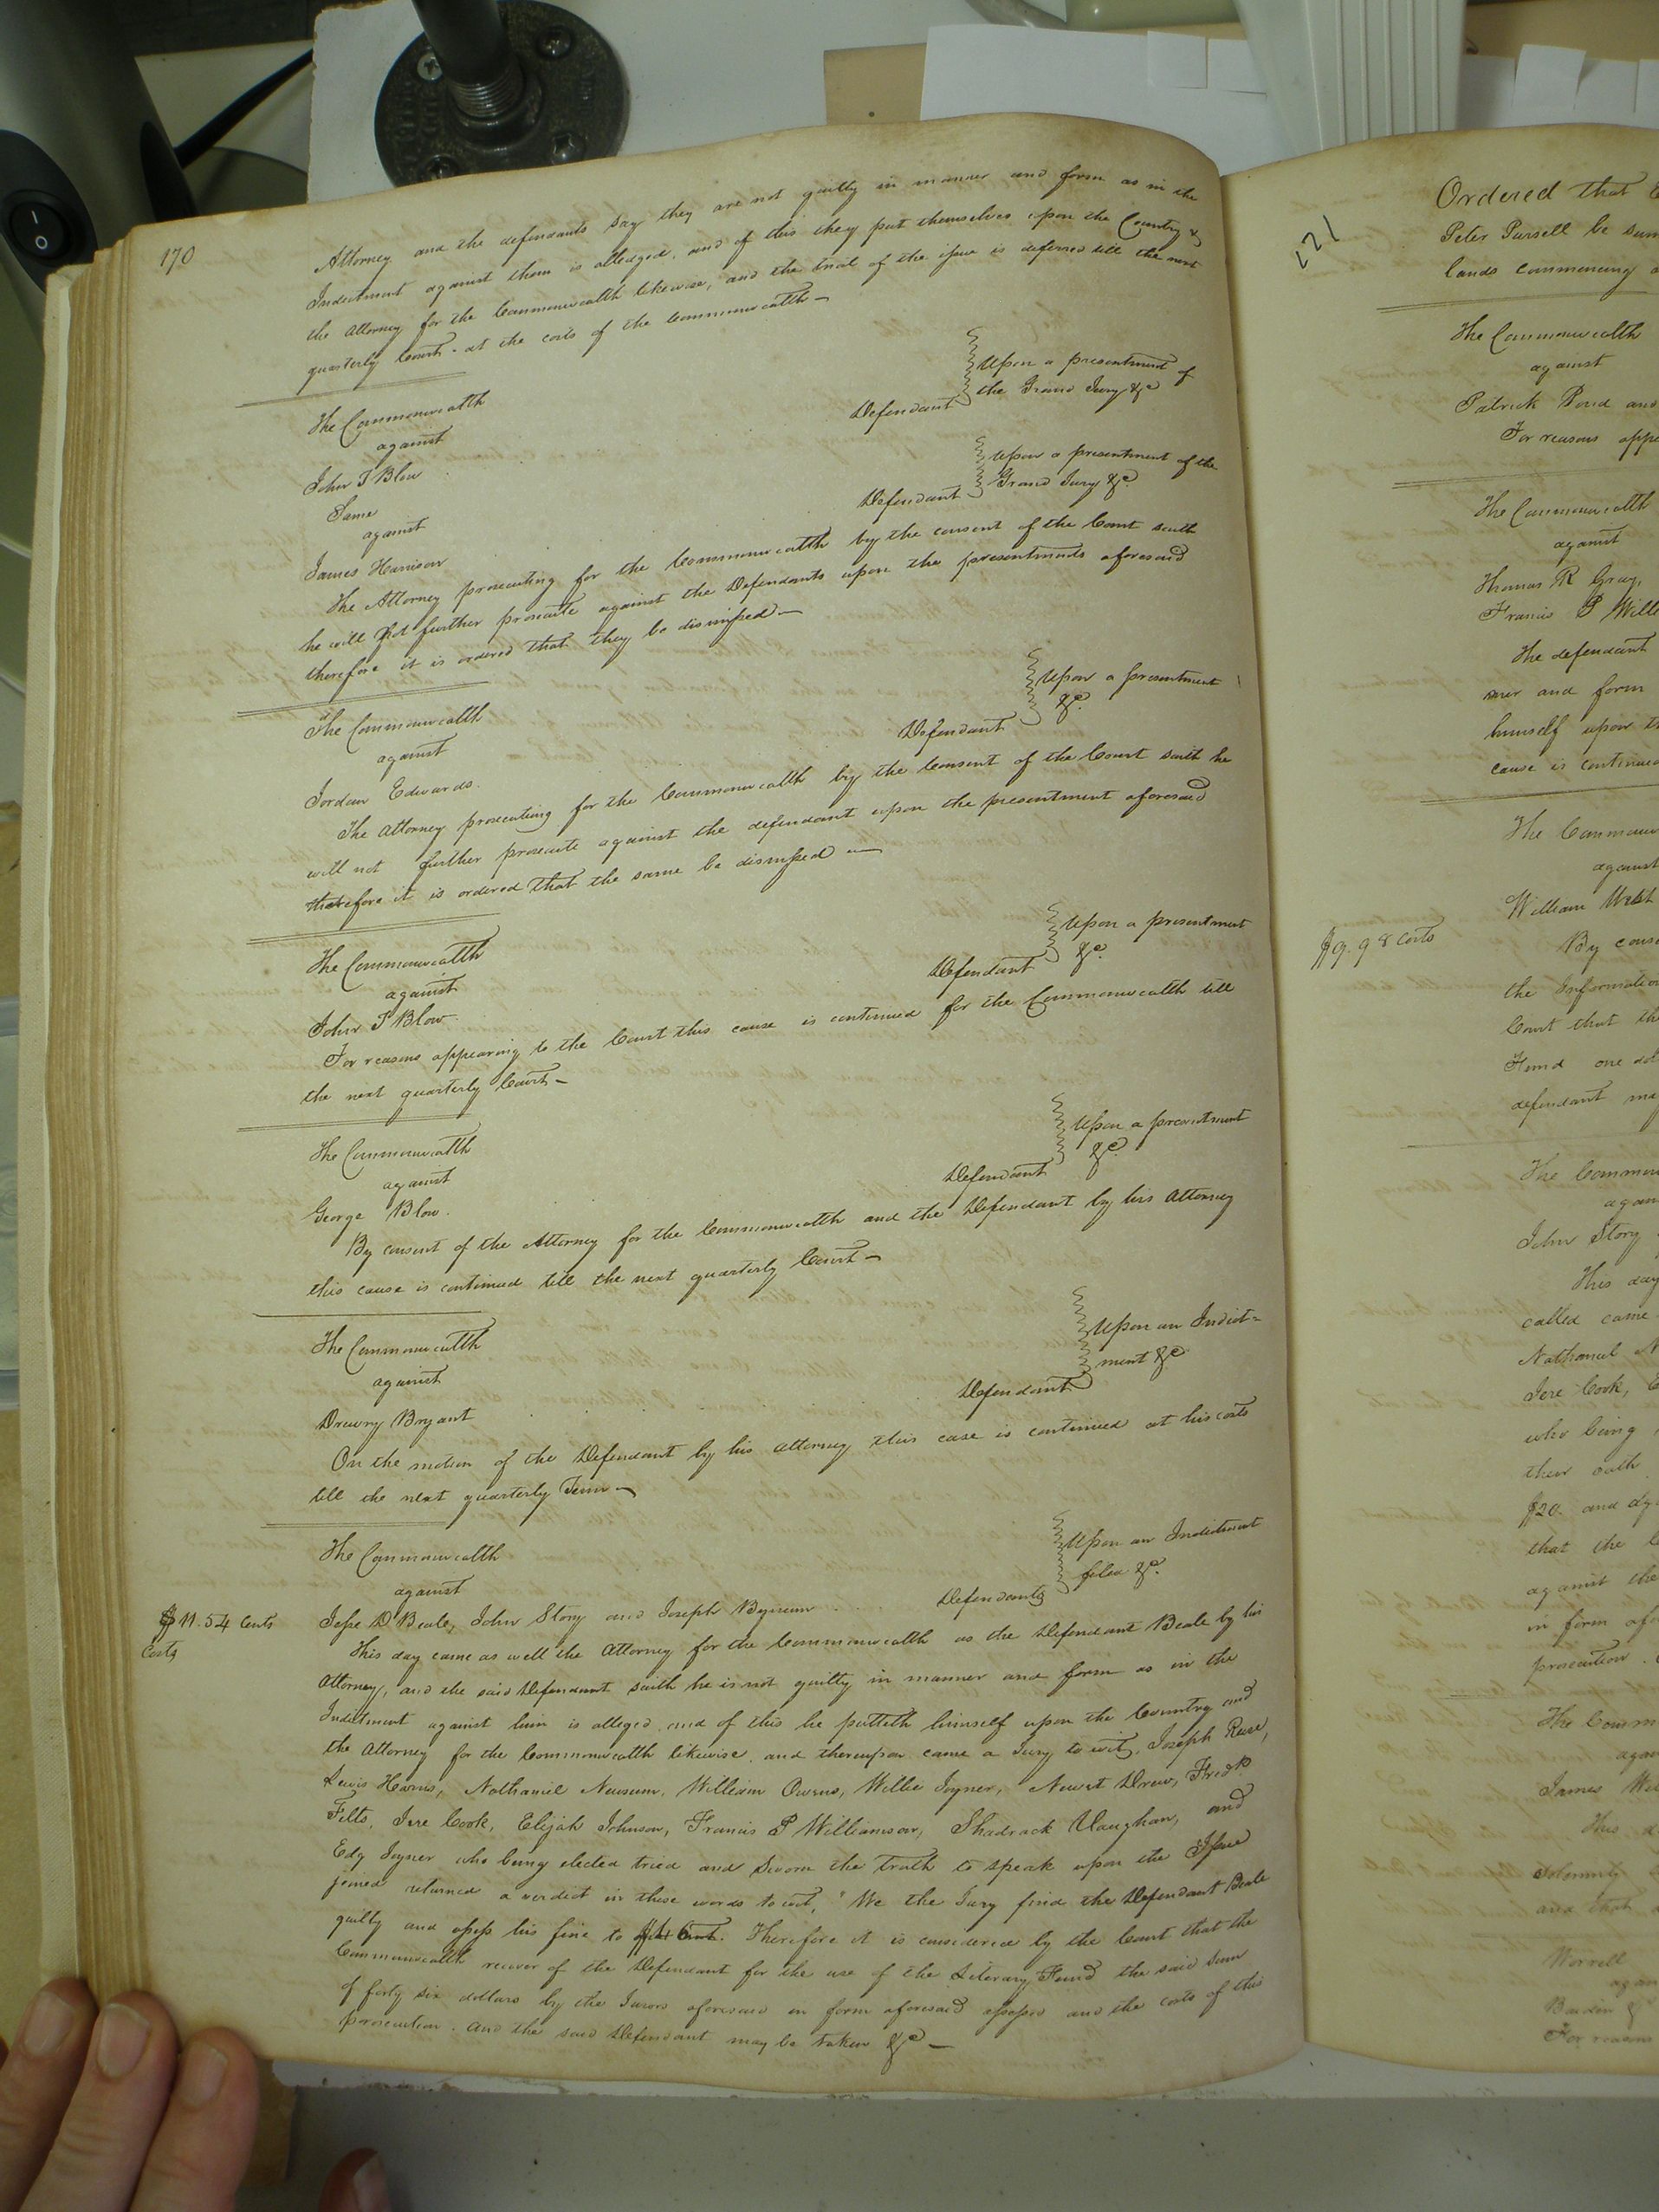 170
Attorney and the defendants say they are not guilty in manner and form as in the
Indictment against them is alledged, and of this they put themselves upon the Country &
the Attorney for the Commonwealth likewise, and the trial of the issue is deferred till the next
quarterly Court - at the costs of the Commonwealth -
The Commonwealth
against
John T Blow Defendant
Upon a presentment of
the Grand Jury &c
Same
against
James Harrison Defendant
Upon a presentment of the
Grand Jury &c
The Attorney prosecuting for the Commonwealth by the consent of the Court saith
he will not further prosecute against the Defendants upon the presentments aforesaid
therefore it is ordered that they be dismissed -
The Commonwealth
against
Jordan Edwards. Defendant
Upon a presentment
&c
The Attorney prosecuting for the Commonwealth by the Consent of the Court saith he
will not further prosecute against the defendant upon the presentment aforesaid
therefore it is ordered that the same be dismissed -
The Commonwealth
against
John T Blow. Defendant
Upon a presentment
&c.
For reasons appearing to the Court this cause is continued for the Commonwealth till
the next quarterly Court -
The Commonwealth
against
George Blow. Defendant
Upon a presentment
&c
By consent of the Attorney for the Commonwealth and the Defendant by his Attorney
this cause is continued till the next quarterly Court -
The Commonwealth
against
Drewry Bryant Defendant
Upon an Indict=
ment &c
On the motion of the Defendant by his Attorney this case is continued at his costs
till the next quarterly Term -
The Commonwealth
against
Jesse D Beale, John Story and Joseph Bynum Defendants
Upon an Indictment
filed &c.
$11.54 Cents
Costs
This day came as well the Attorney for the Commonwealth as the Defendant Beale by his
Attorney, and the said Defendant saith he is not guilty in manner and form as in the
Indictment against him is alleged and of this he putteth himself upon the Country and
the Attorney for the Commonwealth likewise, and thereupon came a Jury to wit, Joseph
Lewis Harris, Nathaniel Newsum, William Owens, Willie Joyner, Newit Drew, Fredk
Felts, Jere Cook, Elijah Johnson, Francis P Williamson, Shadrack Vaughan, and
Edy Joyner who being elected tried and Sworn the truth to speak upon the Issue
joined returned a verdict in these words to wit, "We the Jury find the Defendant Beale
guilty and assess his fine to Therefore it is considered by the Court that the
Commonwealth recover of the Defendant for the use of the Literary Fund the said sum
of forty six dollars by the Jurors aforesaid in form aforesaid assessed and the costs of this
prosecution. And the said Defendant may be taken &c -
Ordered that
Peter Pursell be
lands commencing
The Commonwealth
against
Patrick and
For reasons
The Commonwealth
against
Thomas R Gray,
Francis P
The defendant
and form
himself upon
cause is continued
The
against
William West
$9.98 Costs
By
the
Court that
Fund one
defendant
The
John Story
This day
called came
Nathaniel
Jere Cook,
who being
their oath
$20. and
that the
against the
in form
prosecution.
The
James
This
and that
Worrell
For reasons